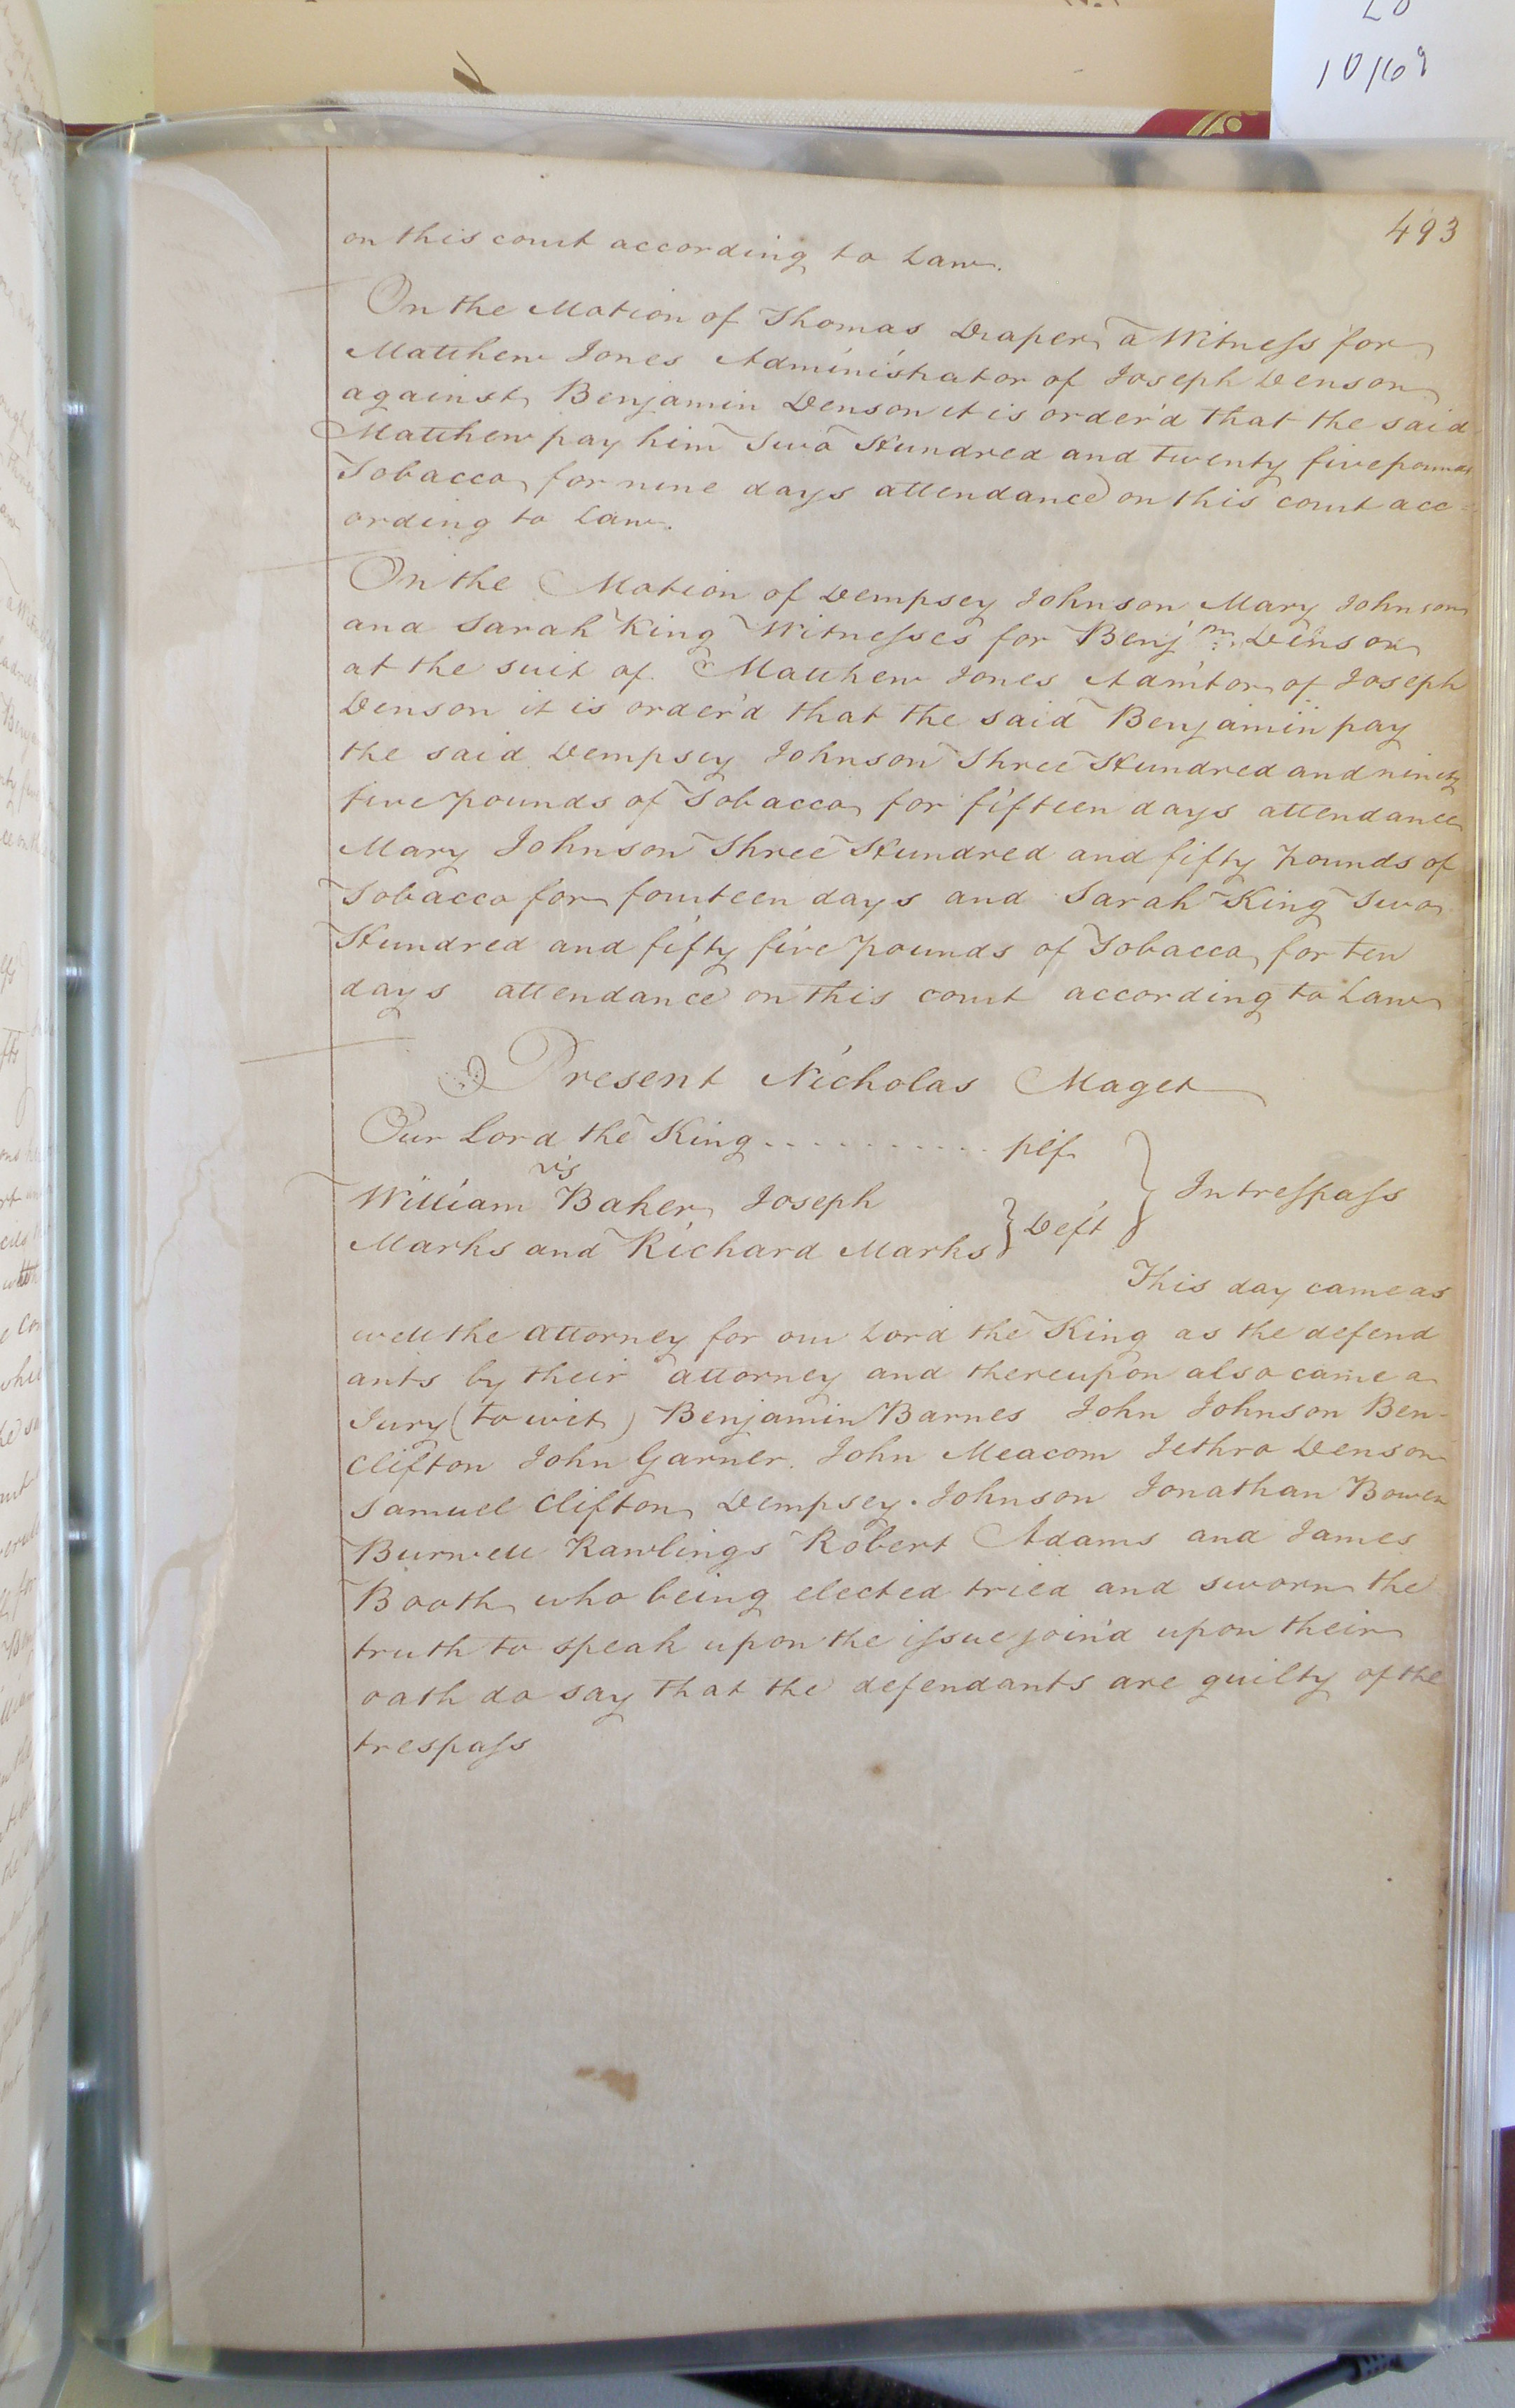 493
on this court according to Law.
On the Motion of Thomas Draper a Witness for
Matthew Jones Administrator of Joseph Denson
against Benjamin Denson it is order'd that the said
Matthew pay him Two Hundred and twenty five pounds
Tobacco for nine days attendance on this court acc=
ording to Law.
On the Motion of Dempsey Johnson Mary Johnson
and Sarah King Witnesses for Benjmn. Denson
at the suit of Matthew Jones Admtor of Joseph
Denson it is order'd that the said Benjamin pay
the said Dempsey Johnson Three Hundred and ninety
five pounds of Tobacco for fifteen days attendance
Mary Johnson Three Hundred and fifty pounds of
Tobacco for fourteen days and Sarah King Two
Hundred and fifty five pounds of Tobacco for ten
days attendance on this court according to Law
Present Nicholas Maget
Our Lord the King . . . . . . . . . . plf
vs
William Baker Joseph
Marks and Richard Marks } Deft } Intrespass
This day came as
well the attorney for our Lord the King as the defend
ants by their attorney and thereupon also came a
Jury (to wit) Benjamin Barnes John Johnson Ben-
Clifton John Garner. John Meacom Jethro Denson
Samuel Clifton Dempsey Johnson Jonathan Bowen
Burwell Rawlings Robert Adams and James
Booth who being elected tried and sworn the
truth to speak upon the issue join'd upon their
oath do say that the defendants are guilty of the
trespass